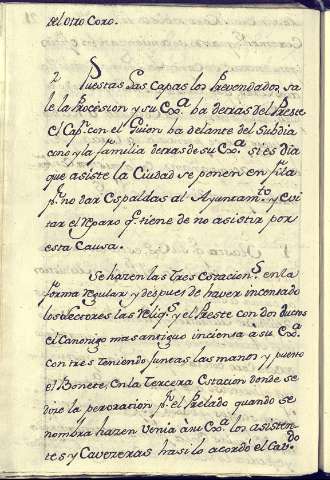 del otro Coro.
2 Puestas las capas los Prevendados, sa
le la Procesion y su Exª. ba detras del Preste
el Capn. con el Guion ba delante del Subdia
cono, y la familia detras de su Exª. si es dia
que asiste la Ciudad se ponen en fila
pr. no dar Espaldas al Ayuntamto. y evi
tar el reparo qe. tiene de no asistir por
esta Causa.
Se hazen las tres Estacions. en la
forma regular y despues de haver incensado
los Rectores las Reliqs. y el Preste con dos
el Canonigo mas antiguo inciensa à su Exª.
con tres teniendo juntas las manos y puesto
el Bonete, en la tercera Estacion donde se
dice la peroracion pr. el Prelado quando se
nombra hazen Venia à su Exª. los asisten-
tes y Cavezeras, hasi lo acordó el Cavdo